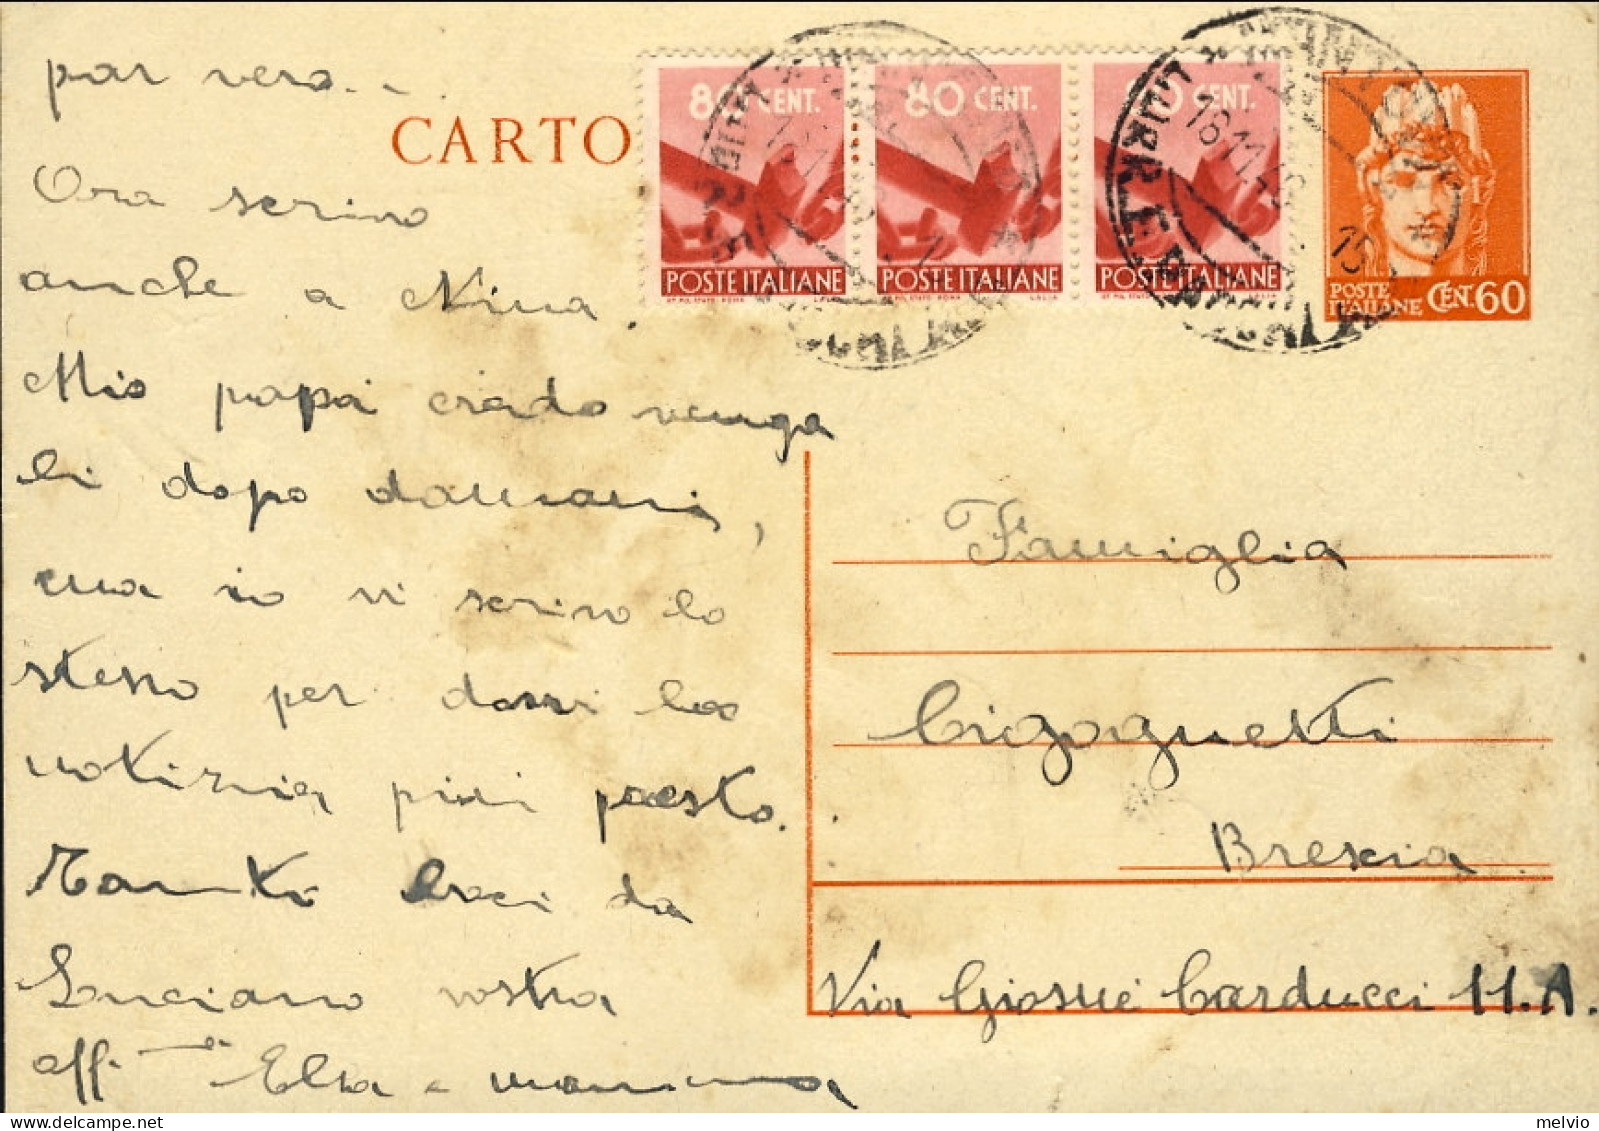 par vero...
CARTO
80 CENT.
80 CENT.
80 CENT.
POSTE ITALIANE
POSTE ITALIANE
POSTE ITALIANE
POSTE ITALIANE CENT. 60
18.11.46
15
Ora scrivo
anche a Nina.
Mio papà credo venga
lì dopo domani,
ma io vi scrivo lo
stesso per darvi la
notizia più presto.
Tanti baci da
Luciano vostra
aff.ma Elsa e mamma
Famiglia
Cigognetti
Brescia
Via Giosuè Carducci 11.A.
melvio